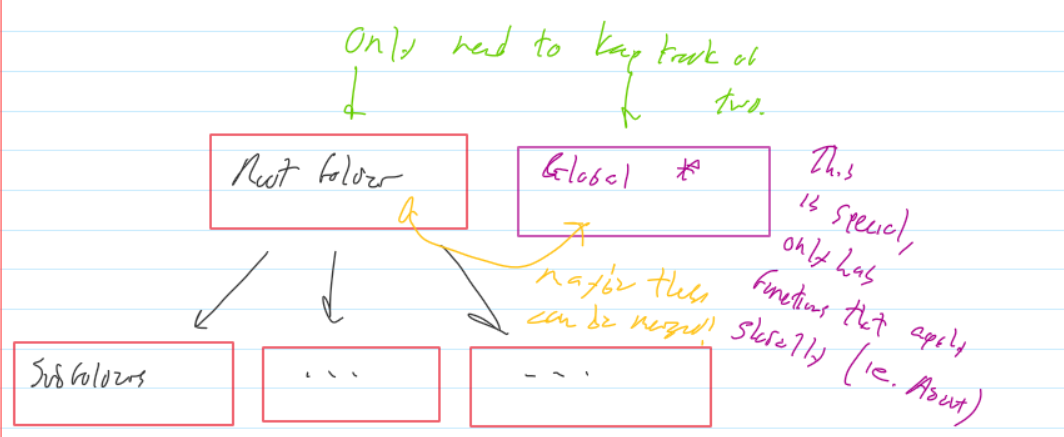 Only need to keep track of
two.
Root Folder
Global *
This
is special,
only has
functions that apply
globally (i.e. About)
maybe these
can be merged?
Subfolders
...
---.